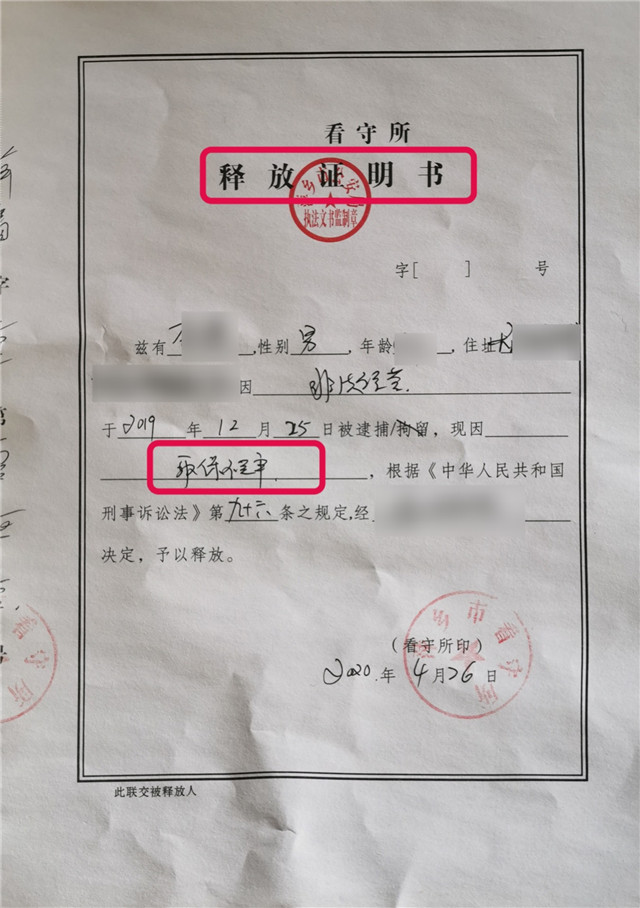 看守所
释放证明书
执法文书监制章
字[ ] 号
兹有 ,性别 男 ,年龄 ,住址
因 非法经营.
于 2019 年 12 月 25 日被逮捕/拘留,现因
取保候审 ,根据《中华人民共和国
刑事诉讼法》第 九十六 条之规定,经
决定,予以释放。
乡市看守所
(看守所印)
2020.年 4月26日
看守所
此联交被释放人